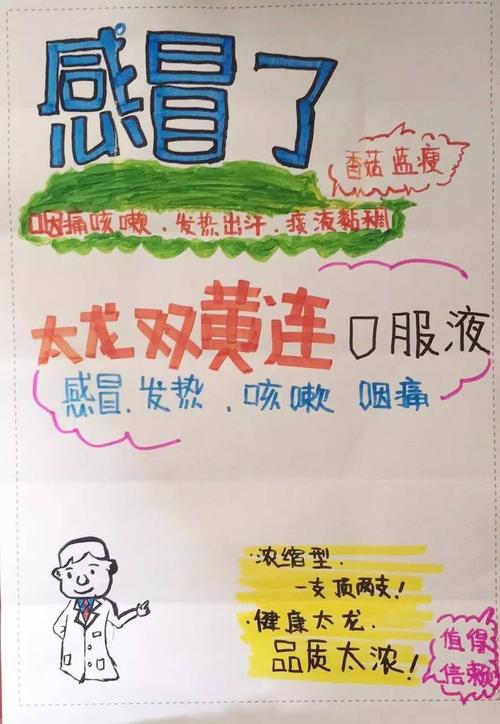 感冒了
香菇蓝瘦
咽痛咳嗽.发热出汗.痰液黏稠
太龙双黄连口服液
感冒.发热.咳嗽 咽痛
·浓缩型.
一支顶两支!
·健康太龙.
品质太浓!
值得
信赖